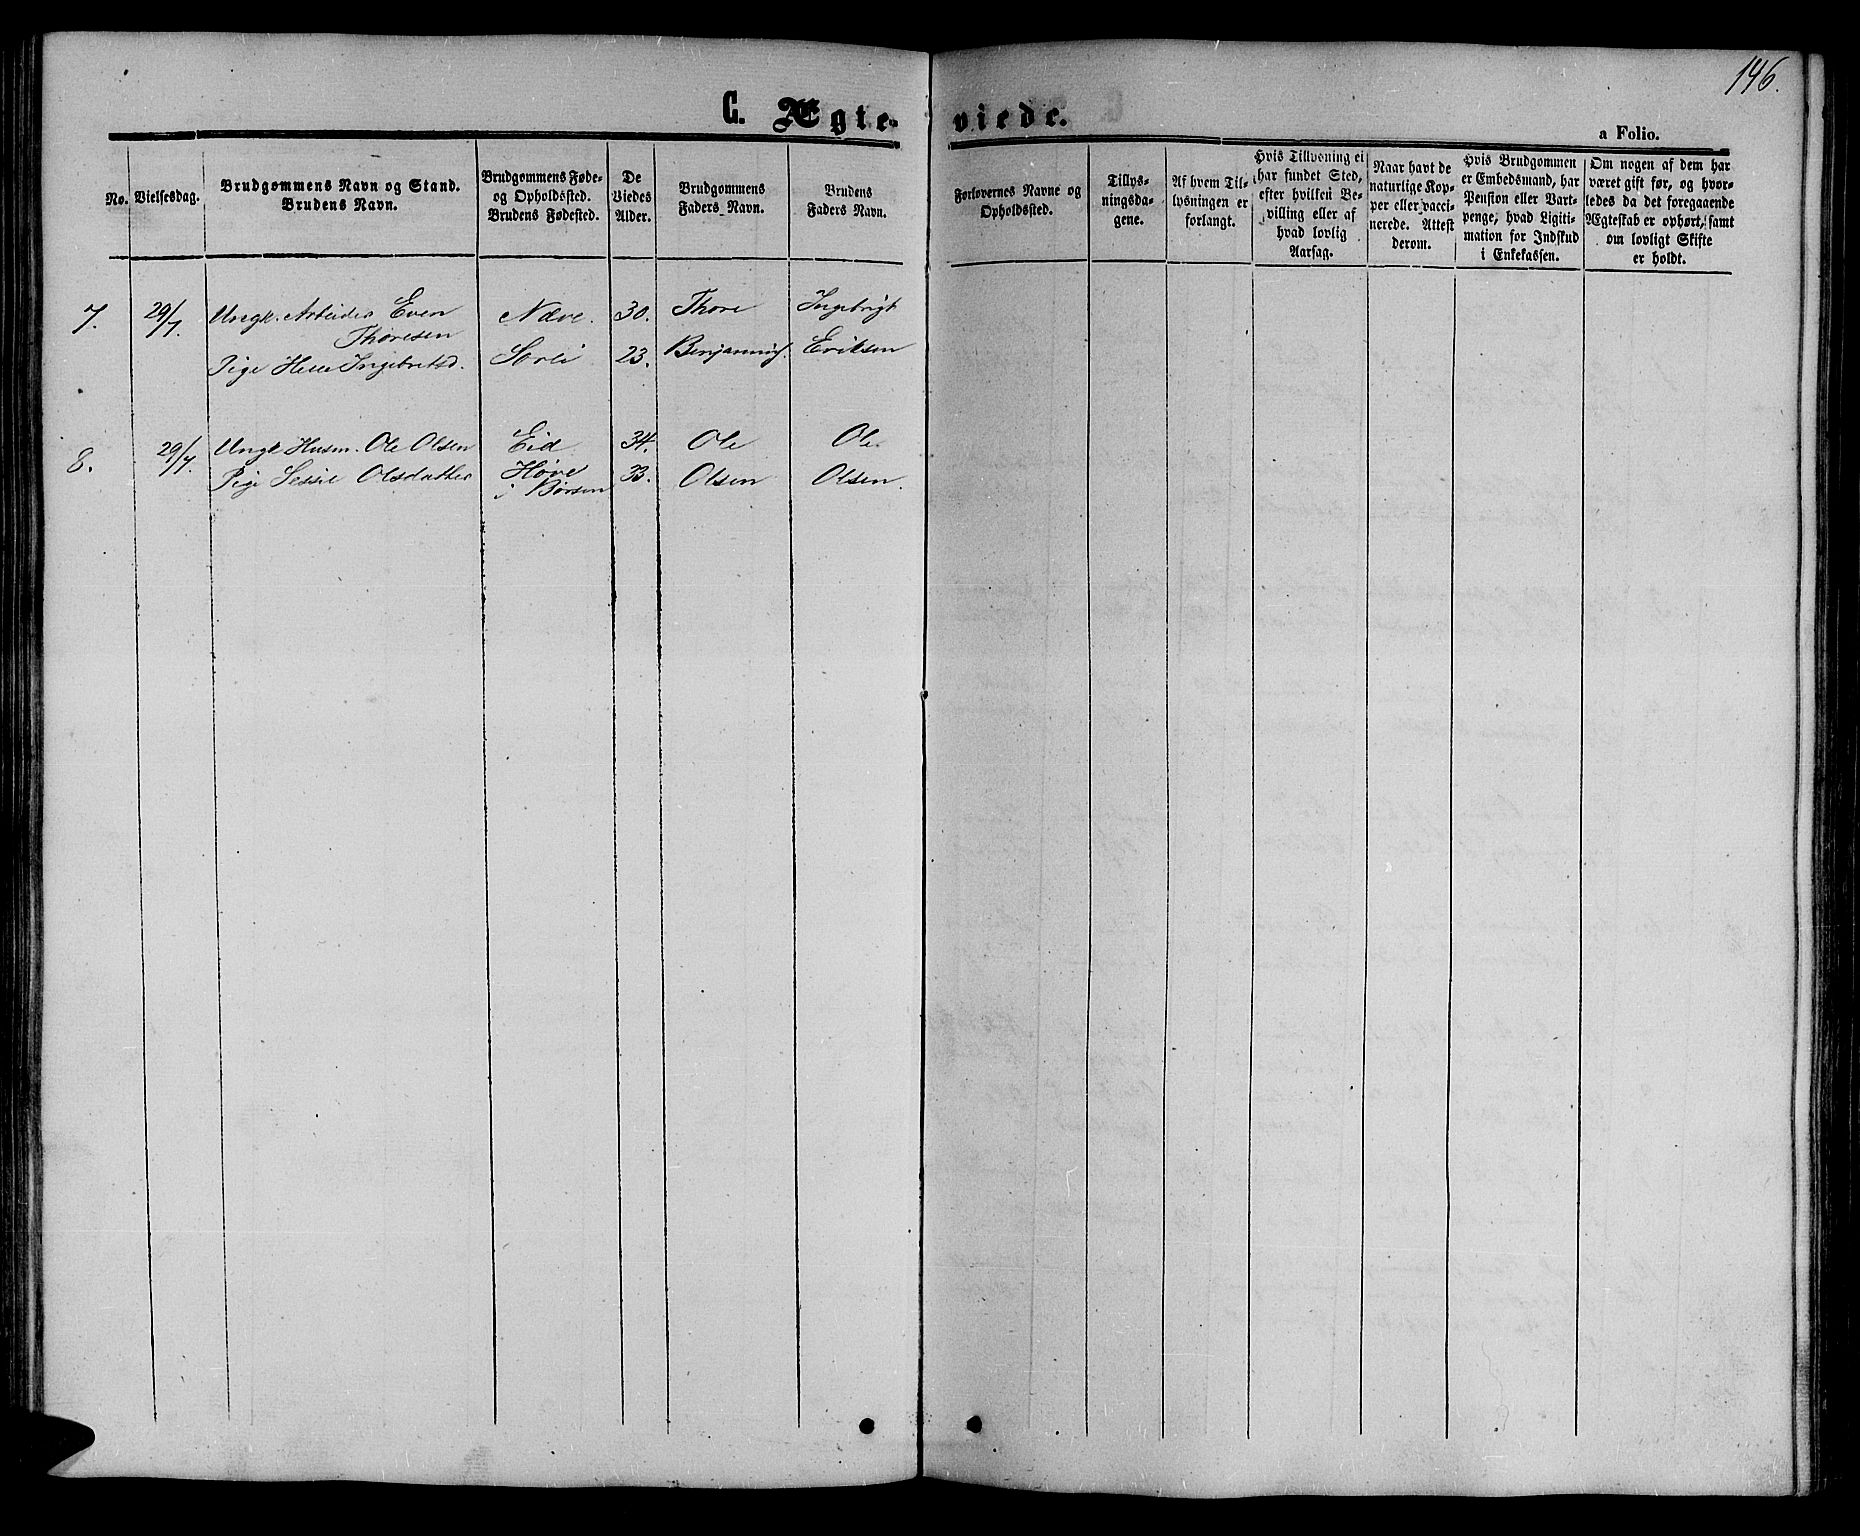 146.
C. Ægte-
viede.
a Folio.
No.
Vielsesdag.
Brudgommens Navn og Stand.
Brudens Navn.
Brudgommens Føde-
og Opholdssted.
Brudens Fødested.
De
Viedes
Alder.
Brudgommens
Faders Navn.
Brudens
Faders Navn.
Forlovernes Navne og
Opholdssted.
Tillys-
ningsda-
gene.
Af hvem Til-
lysningen er
forlangt.
Hvis Tillysning ei
har fundet Sted,
efter hvilken Be-
villing eller af
hvad lovlig
Aarsag.
Naar havt de
naturlige Kop-
per eller vacci-
nerede. Attest
derom.
Hvis Brudgommen
er Embedsmand, har
Pension eller Vart-
penge, hvad Ligiti-
mation for Indskud
i Enkekassen.
Om nogen af dem har
været gift før, og hvor-
ledes da det foregaaende
Ægteskab er ophørt, samt
om lovligt Skifte
er holdt.
7.
29/7.
Ungk. Arbeider Even
Thoresen
Pige Ingebretsd.
Næve.
Sorli
30.
23.
Thore
Benjamins.
Ingebrigt
Eriksen
8.
29/7.
Ungk Husm. Ole Olsen
Pige Sessil Olsdatter
Eid
Høve
i Børsen
34.
33.
Ole
Olsen
Ole
Olsen.